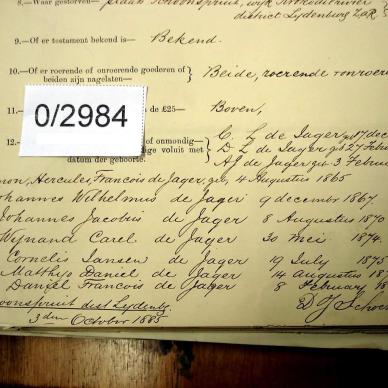 8.—Waar gestorven—
district Lydenburg Z.A.R.
9.—Of er testament bekend is— Bekend.
10.—Of er roerende of onroerende goederen of beiden zijn nagelaten— Beide, roerende
11.— de £25— Boven,
0/2984
12.— of onmondig—
voluit met
datum der geboorte.
C. L de Jager
D L de Jager
de Jager 3
Hercules, Francois de Jager, 4 Augustus 1865
Johannes Wilhelmus de Jager 9 december 1867.
Johannes Jacobus de Jager 8 Augustus 1870
Wynand Carel de Jager 30 mei 1874.
Cornelis Jansen de Jager 19 July 1875
Matthys Daniel de Jager 14 augustus
Daniel Francois de Jager 8
dist Lydenb
3den October 1885